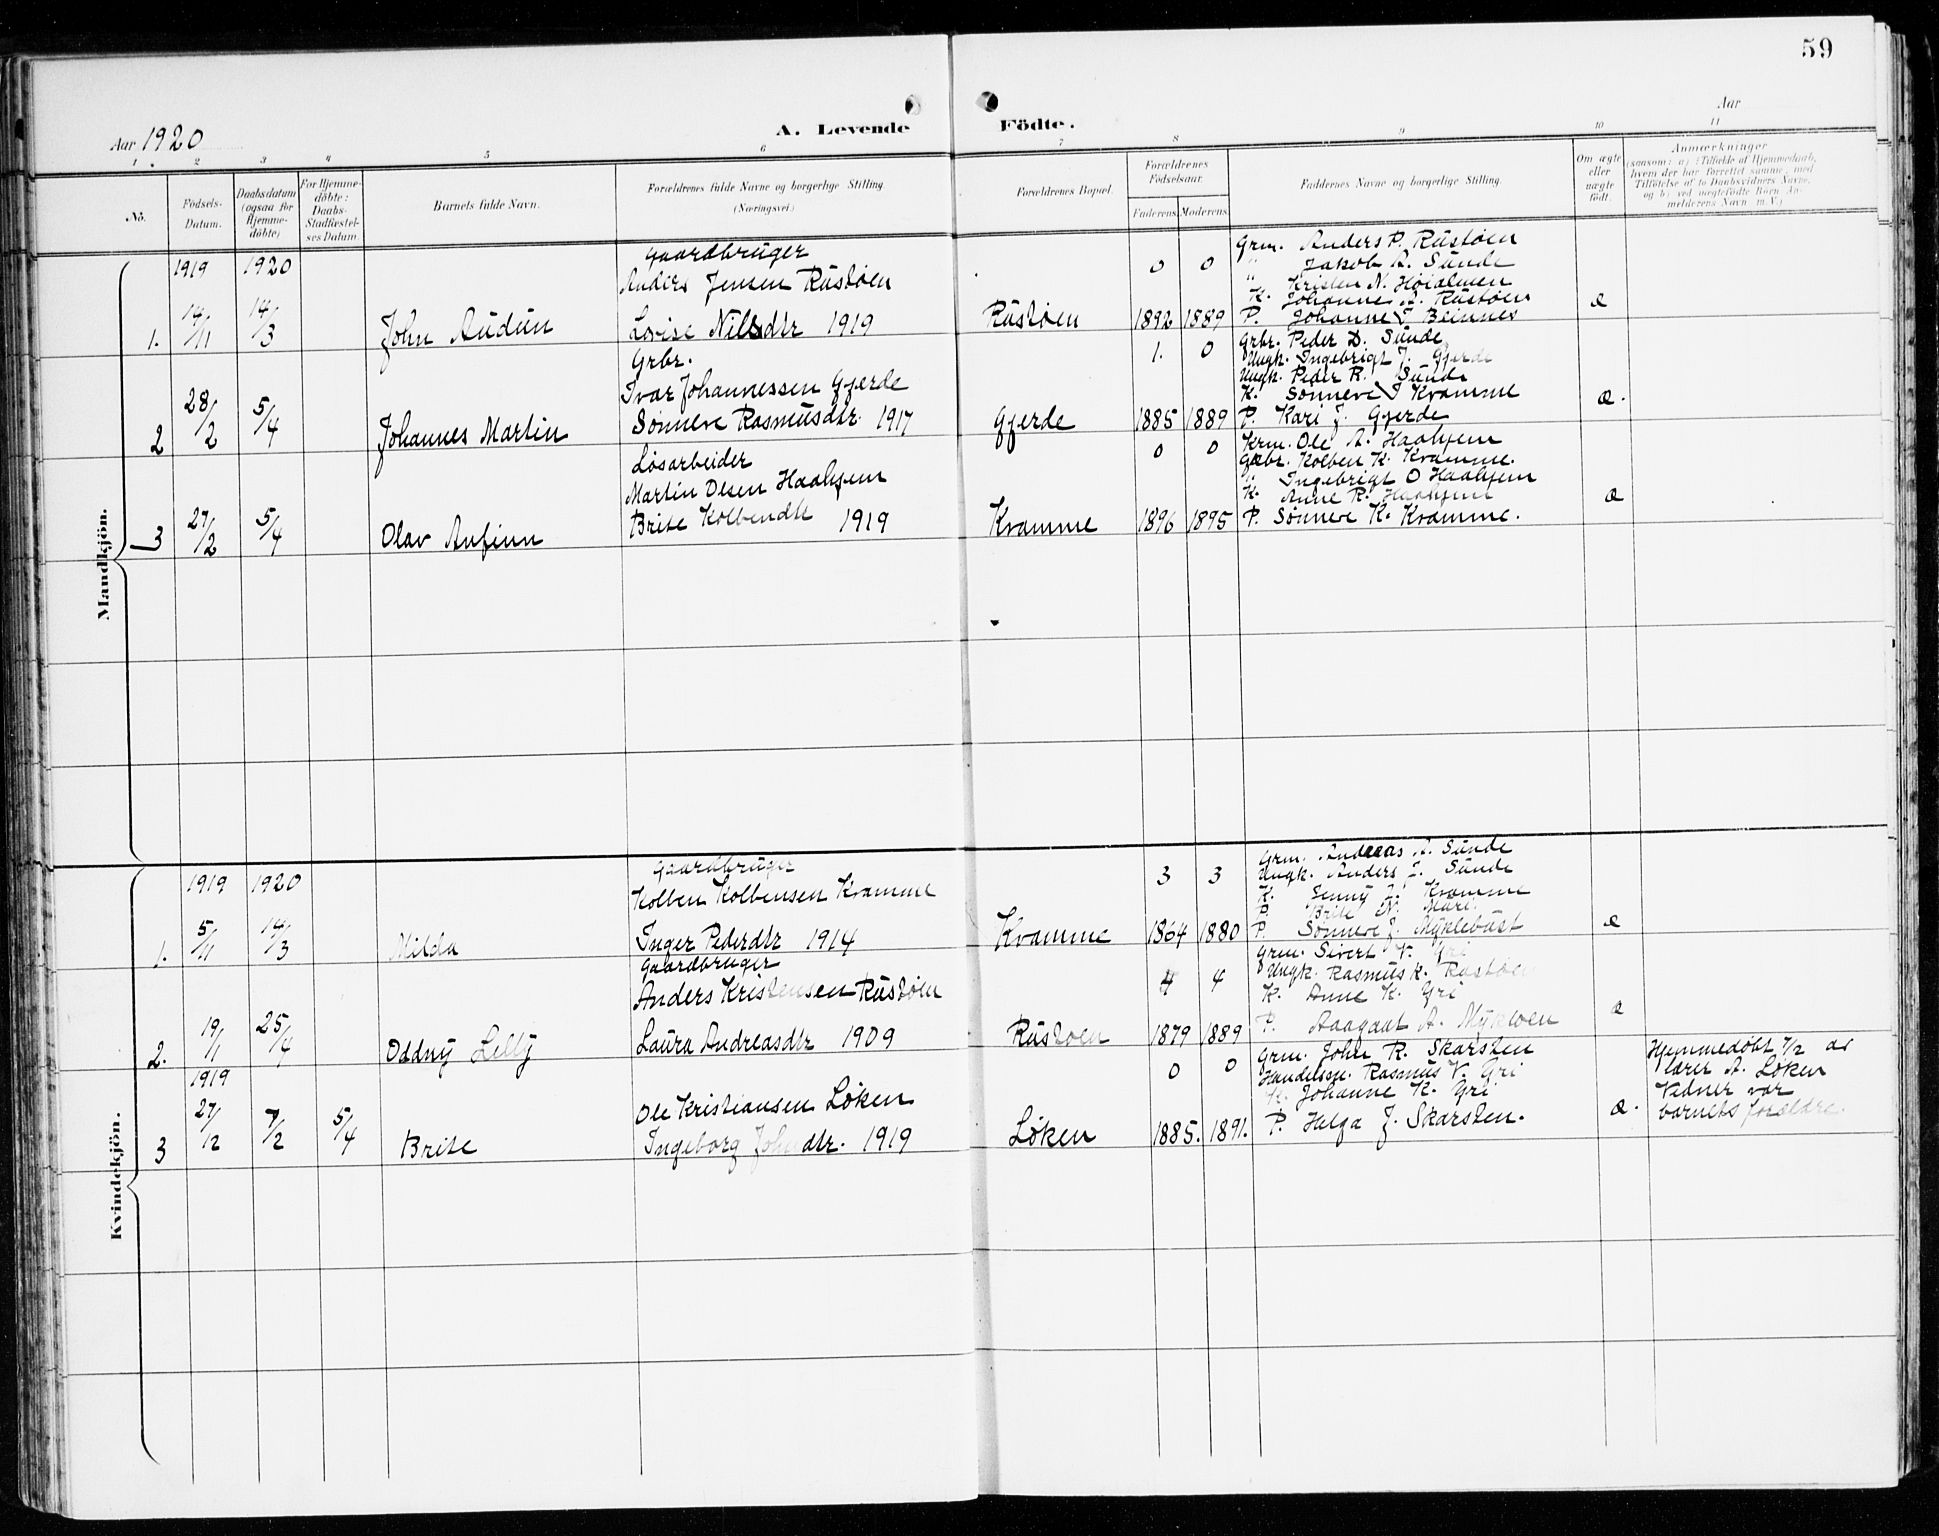 59
Aar 1920
A. Levende Födte.
Aar
1. 2 3 4 5 6 7 8 9 10 11
No.
Födsels-
Datum.
Daabsdatum
(ogsaa for
Hjemme-
döbte)
For Hjemme-
döbte:
Daabs-
Stadfæstel-
ses Datum
Barnets fulde Navn.
Forældrenes fulde Navne og borgerlige Stilling
(Næringsvei.)
Forældrenes Bopæl.
Forældrenes
Födselsaar.
Faderens. Moderens.
Faddernes Navne og borgerlige Stilling.
Om ægte
eller
uægte
födt.
Anmærkninger
(saasom: a) i Tilfælde af Hjemmedaab,
hvem der har forrettet samme, med
Tilföielse af to Daabsvidners Navne,
og b) ved uægtefödte Börn An-
melderens Navn m.V.)
Mandkjön.
1919 1920
1. 14/11 14/3
John Audun
Gaardbruger
Anders Jensen Rustøen
Lovise Nilsdtr 1919
Rustøen
0 0
1892 1889
Grm. Anders P. Rustøen
" Jakob A. Sunde
" Kristen N. Høidalen
K. Johanne A. Rustøen
P. Johanne I Beinnes
æ
2 28/2 5/4
Johannes Martin
Grbr.
Ivar Johannessen Gjerde
Sønneve Rasmusdtr. 1917
Gjerde
1. 0
1885 1889
Grbr. Peder D. Sunde
Ungk. Ingebrigt J. Gjerde
Ungk. Peder R. Sunde
K. Sønneve I Kvamme
P. Kari J. Gjerde
æ.
3 27/2 5/4
Olav Anfinn
Løsarbeider
Martin Olsen Haahjem
Brite Kolbendtr 1919
Kvamme
0 0
1896 1895
Krm. Ole A. Haahjem
Gbr. Kolben K. Kvamme.
" Ingebrigt O Haahjem
K. Anne R. Haahjem
P. Sønneve K. Kvamme.
æ
Kvindekjön.
1919 1920
1. 5/11 14/3
Milda
Gaardbruger
Kolben Kolbensen Kvamme
Inger Pedersdtr 1914
Kvamme
3 3
1864 1880
Grm. Andreas A. Sunde
Ungk. Anders I. Sunde
K. Jenny I. Kvamme
P. Brite N. Muri
P. Sønneve J. Myklebust
æ
2. 19/1 25/4
Oddny Lelly
Gaardbruger
Anders Kristensen Rustøen
Laura Andreasdtr 1909
Rustøen
4 4
1879 1889
Grm. Sivert K. Yri
Ungk. Rasmus K. Rustøen
K. Anne K. Yri
P. Aagaat A. Myklven
æ
1919
3 27/12 7/2 5/4
Brite
Ole Kristiansen Løken
Ingeborg Johndtr. 1919
Løken
0 0
1885. 1891.
Grm. John R. Skarsten
Handelsm. Rasmus V. Yri
K. Johanne K. Yri
P. Helga J. Skarsten.
æ.
Hjemmedøbt 7/2 av
lærer A. Løken
Vidner var
barnets forældre.